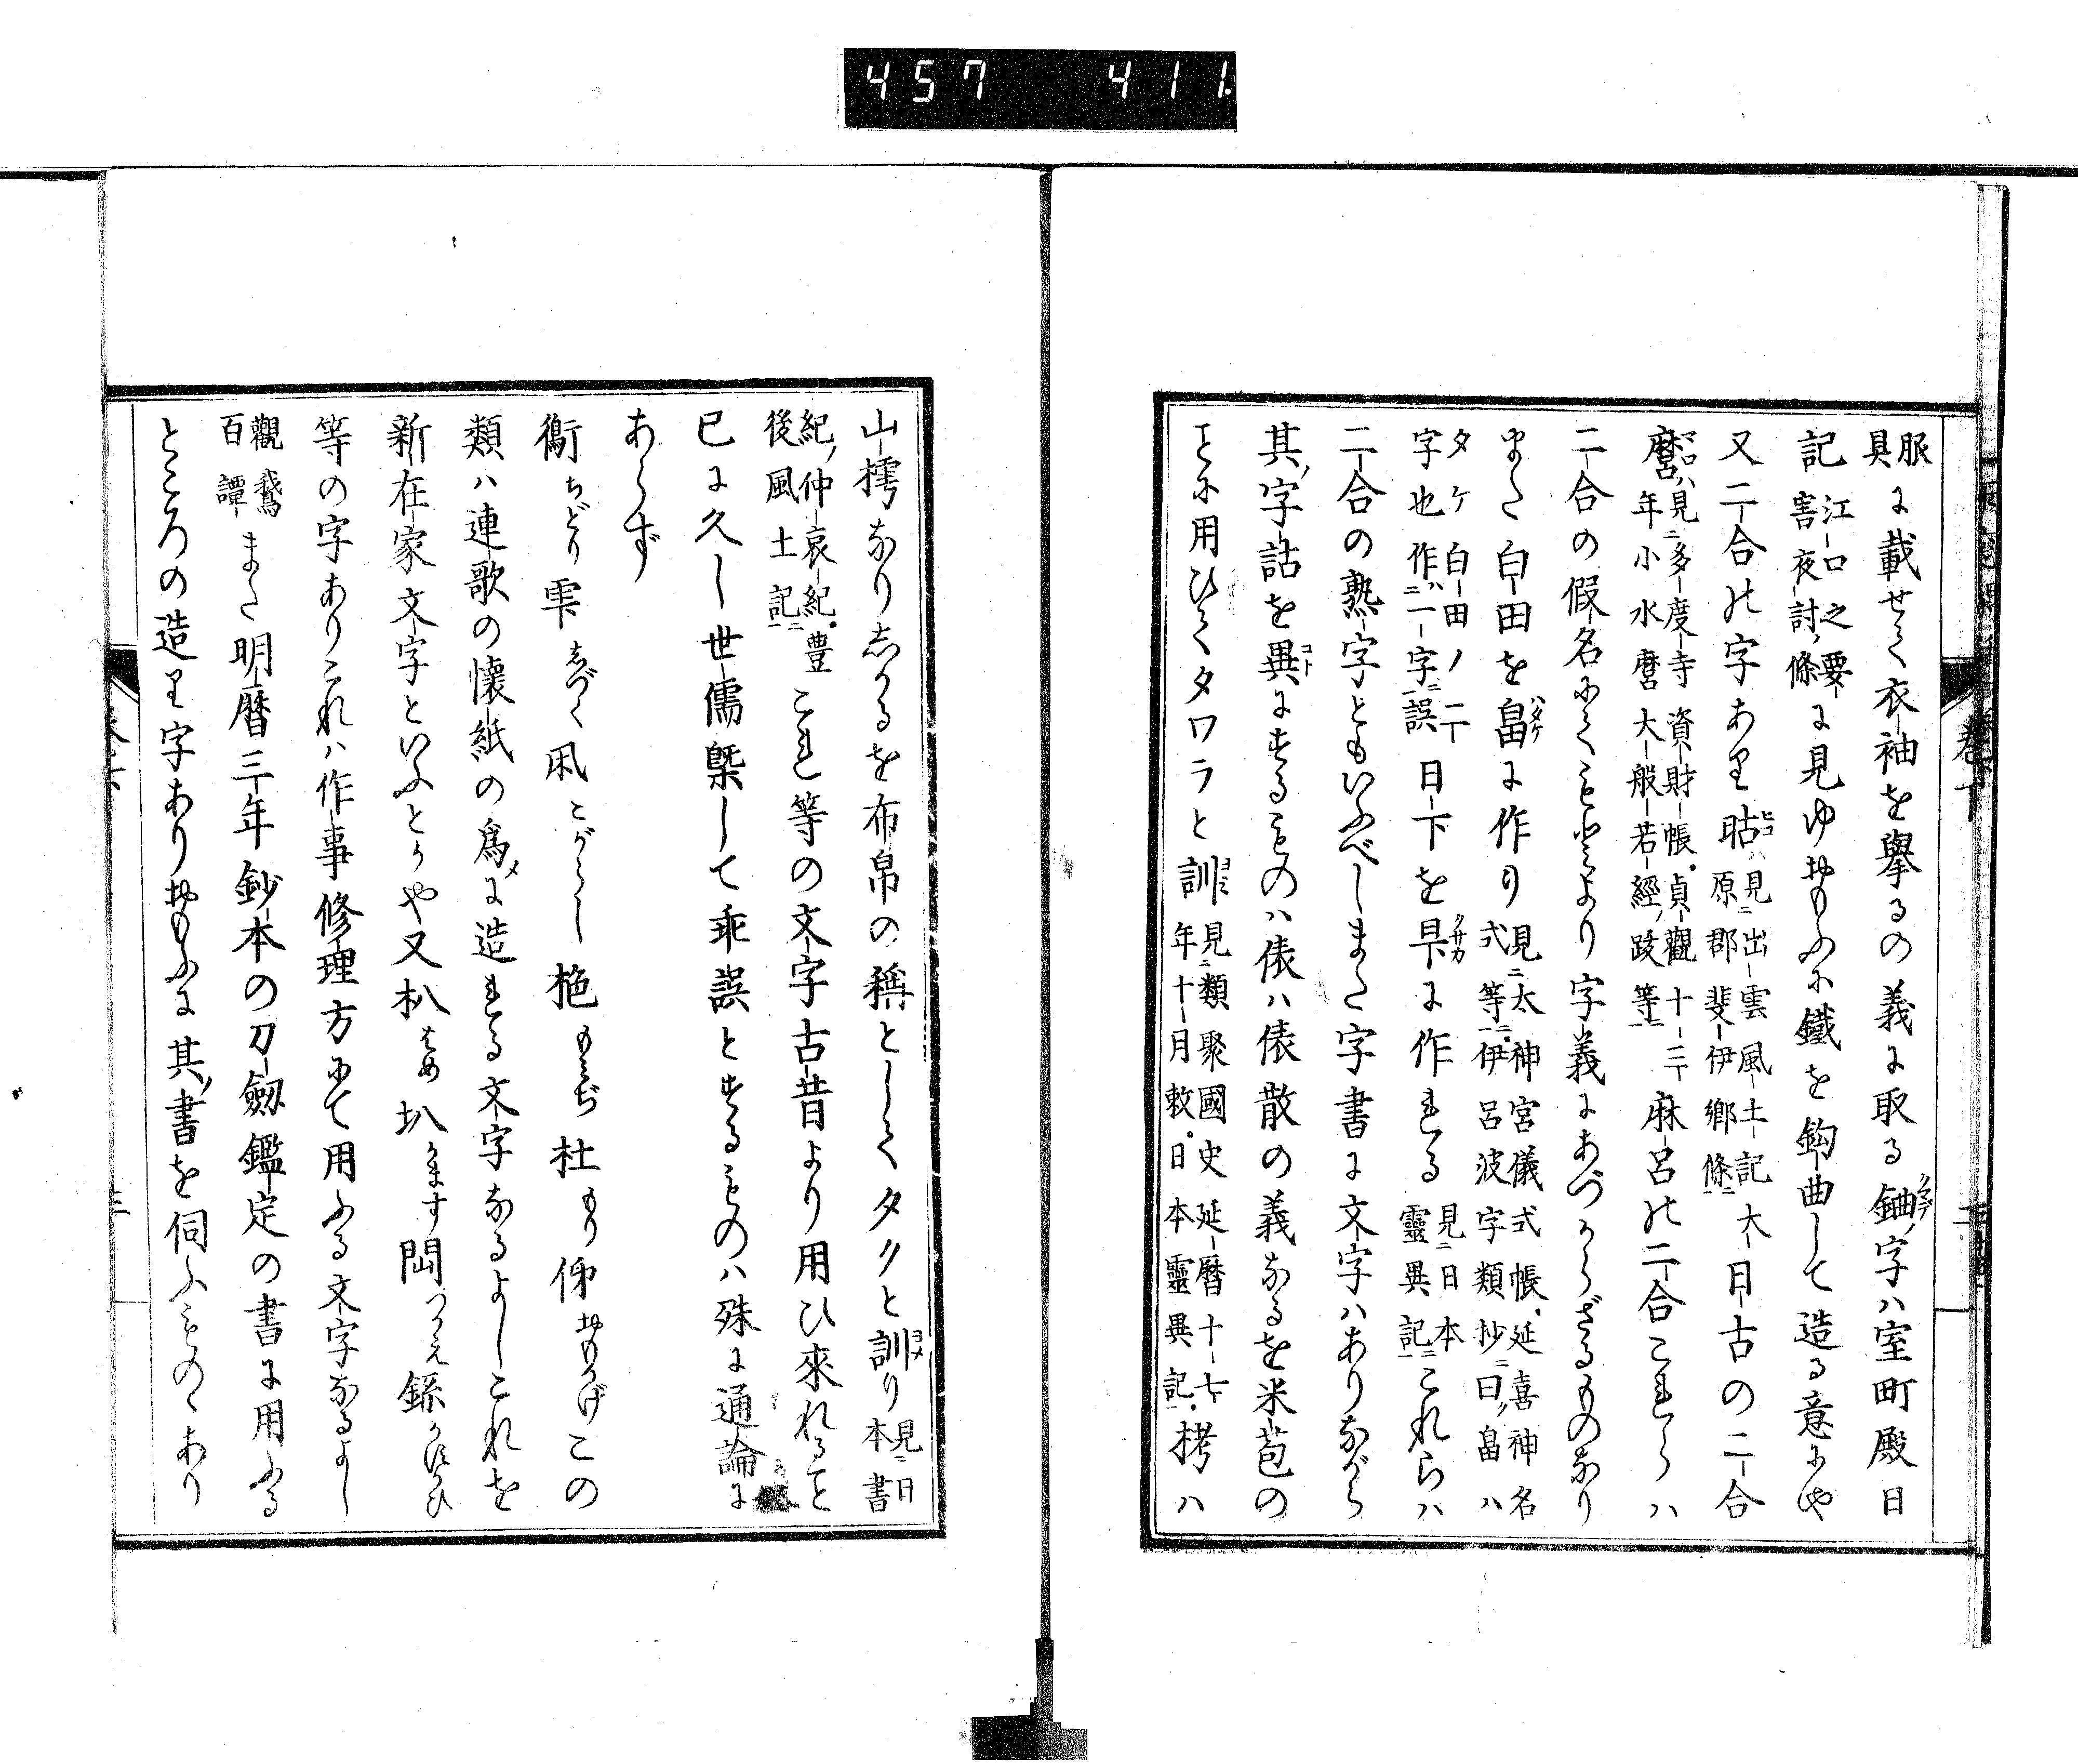 457 411.
服具に載せて衣袖を擧るの義に取る䌷クマデノ字ハ室町殿日
記江口之要害夜討ノ條に見ゆおもふに鐵を鈎曲して造る意にや
又二合の字あり䀦ヒコハ見出雲風土記大原郡斐伊鄉條日古の二合
麿マロハ見多度寺資財帳貞觀十三年小水麿大般若經ノ跋等麻呂の二合これらハ
二合の假名にてもとより字義にあづからざるものなり
また白田を畠ハタケに作り見太神宮儀式帳延喜神名式等伊呂波字類抄曰ク畠ハ
タケ白田ノ二字也作ハ一字誤日下を早クサカに作れる見日本靈異記これらハ
二合の熟字ともいふべしまた字書に文字ハありながら
其ノ字詁を異コトにするものハ俵ハ俵散の義なるを米苞の
ことに用ひてタワラと訓ヨミ見類聚國史延曆十七年十月敕日本靈異記栲ハ
山樗なりしかるを布帛の稱としてタクと訓ヨメり見日本書
紀ノ仲哀紀豊後風土記これ等の文字古昔より用ひ來れること
已に久し世儒槩して乖誤とするものハ殊に通論に
あらず
鵆ちどり雫しづく凩こがらし栬もみぢ杜もり俤おもかげこの
類ハ連歌の懷紙の爲メに造れる文字なるよしこれを
新在家文字といふとかや又朳えぶり圦かます閊つかえ
等の字ありこれハ作事修理方にて用ふる文字なるよし
觀鵞百譚また明曆三年鈔本の刀劔鑑定の書に用ふる
ところの造り字ありおもふに其ノ書を伺ふものゝあり